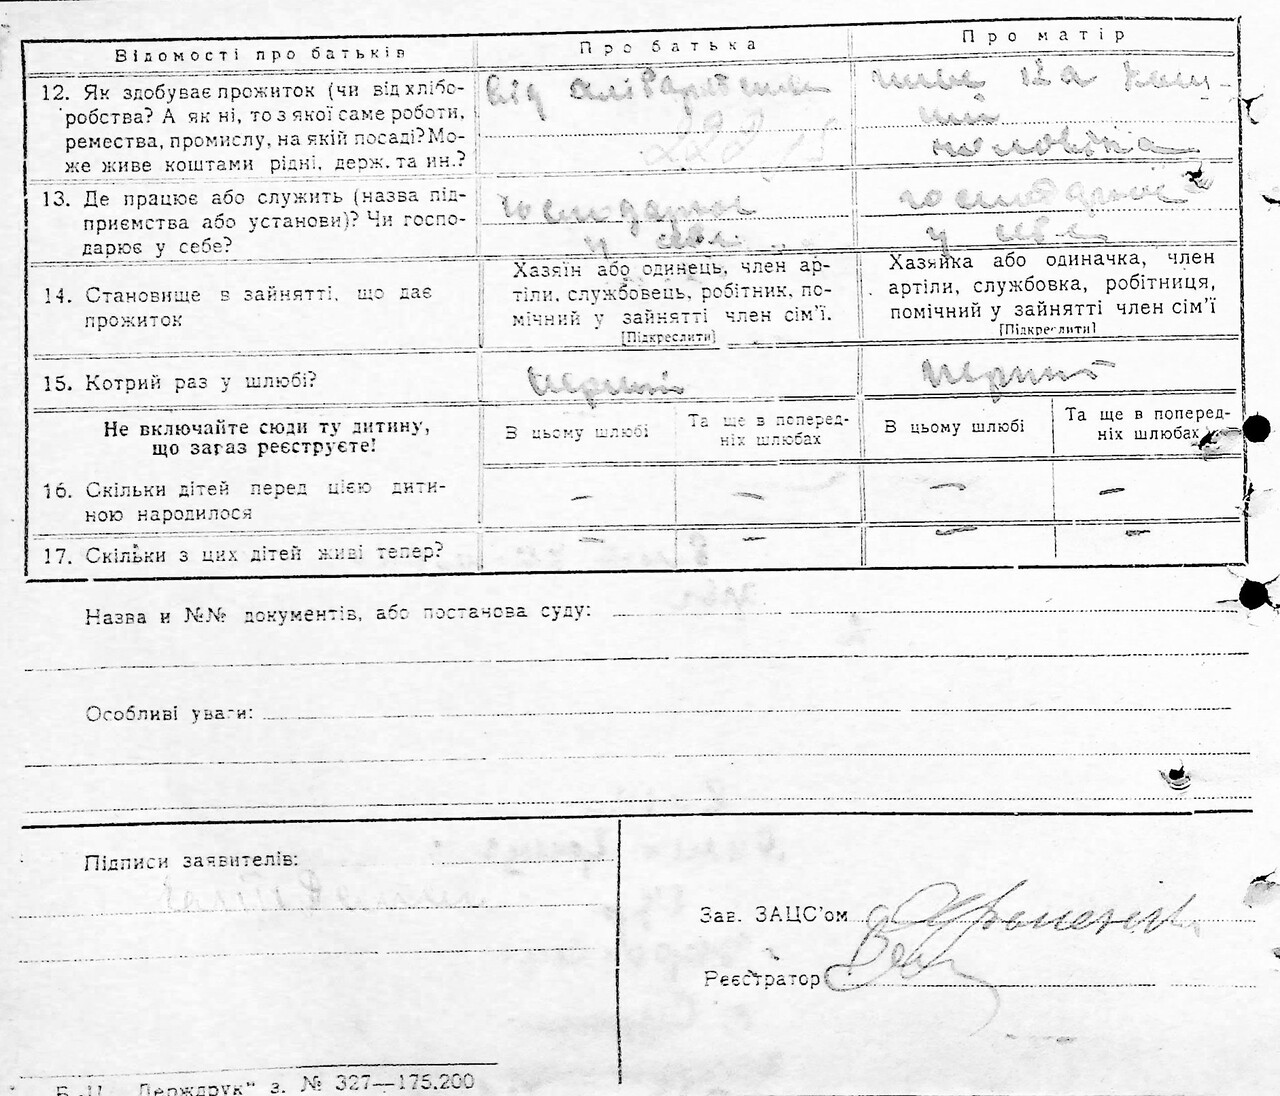 Відомості про батьків
Про батька
Про матір
12. Як здобуває прожиток (чи від хлібо-
робства? А як ні, то з якої саме роботи,
ремества, промислу, на якій посаді? Мо-
же живе коштами рідні, держ. та ин.?
від
живе на кош-
чоловіка
13. Де працює або служить (назва під-
приємства або установи)? Чи госпо-
дарює у себе?
господарює
у себе
господарює
у себе
14. Становище в зайнятті, що дає
прожиток
Хазяїн або одинець, член ар-
тіли, службовець, робітник, по-
мічний у зайнятті член сім’ї.
[Підкреслити]
Хазяйка або одиначка, член
артіли, службовка, робітниця,
помічний у зайнятті член сім’ї
[Підкреслити]
15. Котрий раз у шлюбі?
перший
перший
Не включайте сюди ту дитину,
що зараз реєструєте!
В цьому шлюбі
Та ще в поперед-
ніх шлюбах
В цьому шлюбі
Та ще в поперед-
ніх шлюбах
16. Скільки дітей перед цією дити-
ною народилося
— — — —
17. Скільки з цих дітей живі тепер?
— — — —
Назва и №№ документів, або постанова суду:
Особливі уваги:
Підписи заявителів:
Зав. ЗАЦС’ом
Реєстратор
Держдрук“ з. № 327—175.200